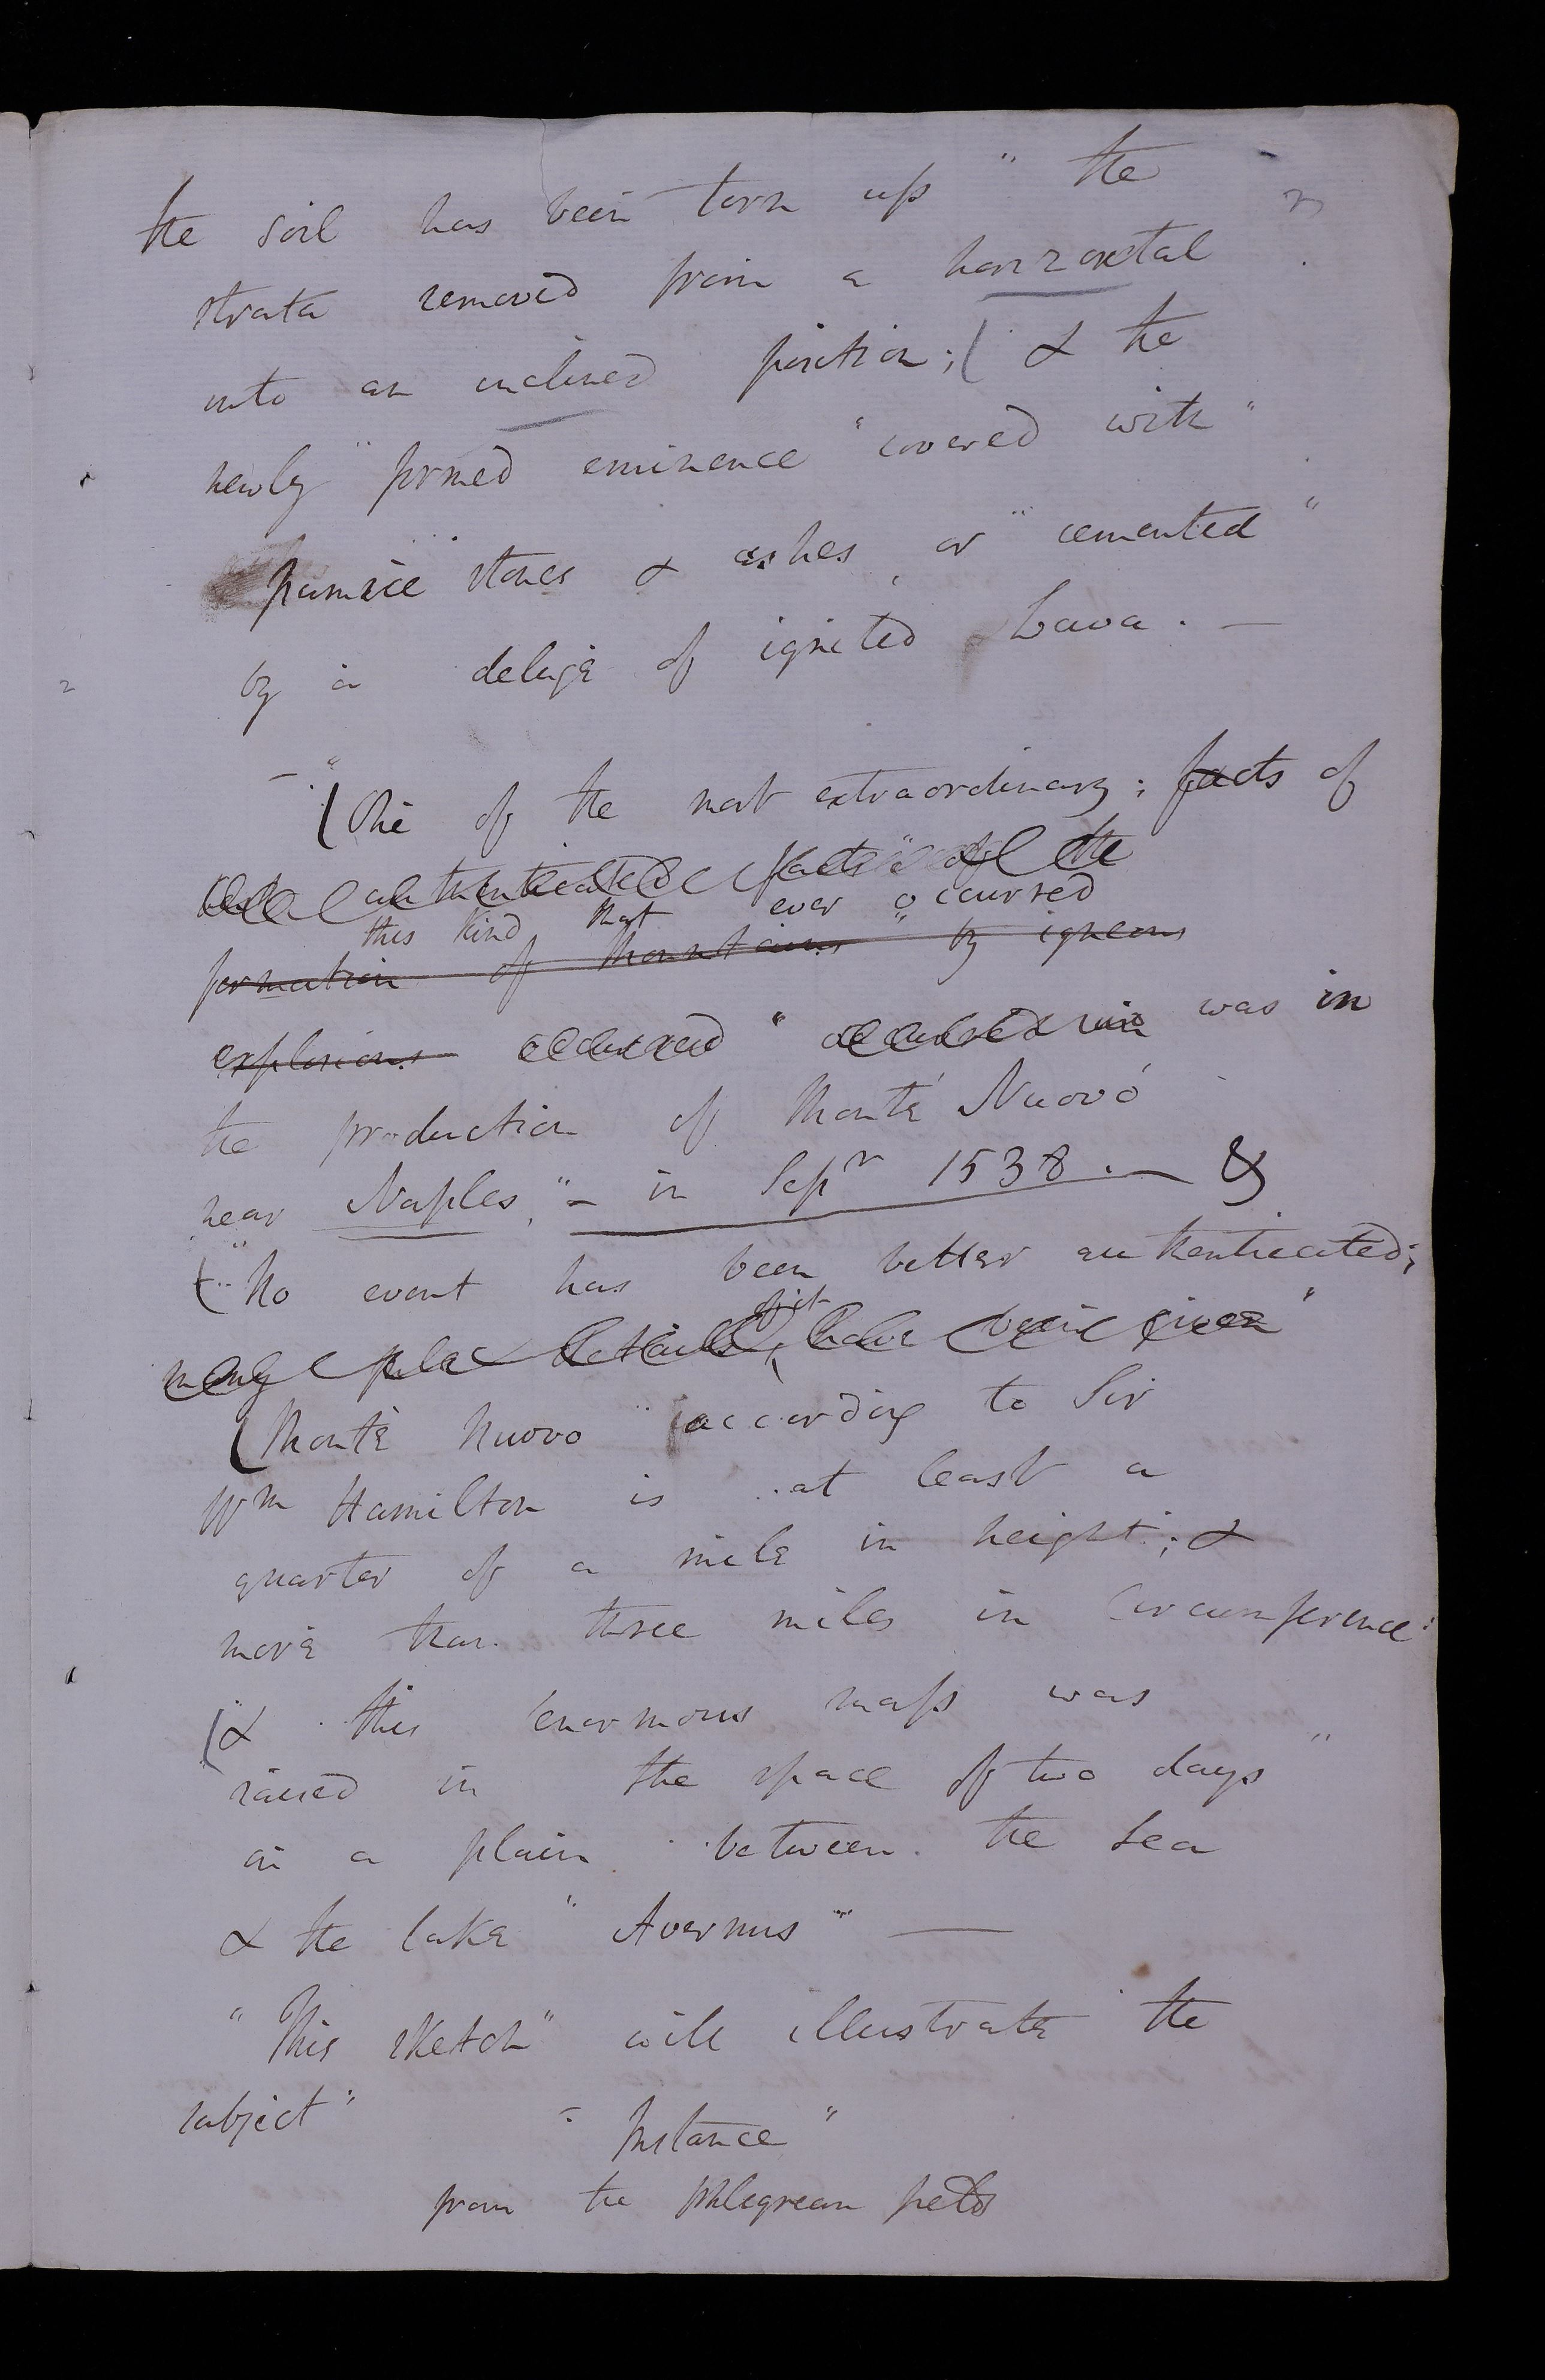 the soil has been torn up " the
strata removed from a horizontal
into an inclined position; ( & the
newly " formed eminence " covered with "
pumice stones & ashes, or " cemented "
by a deluge of ignited Lava. —
— " ( One of the most extraordinary; facts of
authenticated facts " of the
this kind that ever occurred
formation of Mountains " by igneous
explosions occurred " occurred in was in
the production of Monté Nuovó
near Naples, " – in Sepr 1538. — &
( " No event has been better authenticated;
many details have been given "
( Monté Nuovo " according to Sir
Wm Hamilton is at least a
quarter of a mile in height; &
more than three miles in Circumference:
( & this enormous mass was
raised in the space of two days "
in a plain between the Sea
& the lake " Avernus " —
" This sketch " will illustrate the
subject " – Instance "
from the phlegrean fields